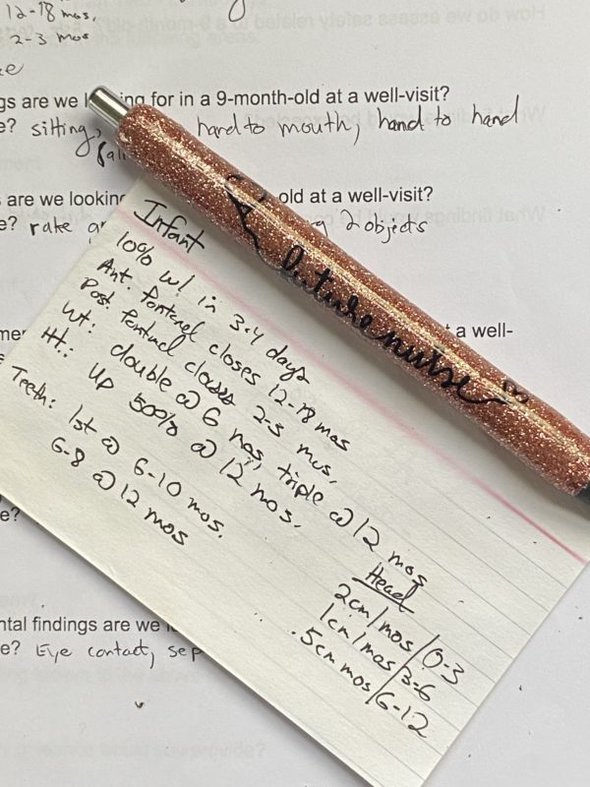 12-18 mos.
2-3 mos
gs are we for in a 9-month-old at a well-visit?
e? sitting, hand to mouth, hand to hand
are we looking old at a well-visit?
e? rake 2 objects
a well-
Infant
10% w/ in 3-4 days
Ant. fontanel closes 12-18 mos
Post. fontanel closes 2-3 mos.
Wt: double @ 6 mos, triple @ 12 mos
Ht.: up 50% @ 12 mos.
Teeth: 1st @ 6-10 mos.
6-8 @ 12 mos
Head
2cm/mos/0-3
1cm/mos/3-6
.5cm mos/6-12
future nurse
e?
ntal findings are we
e? Eye contact, sep